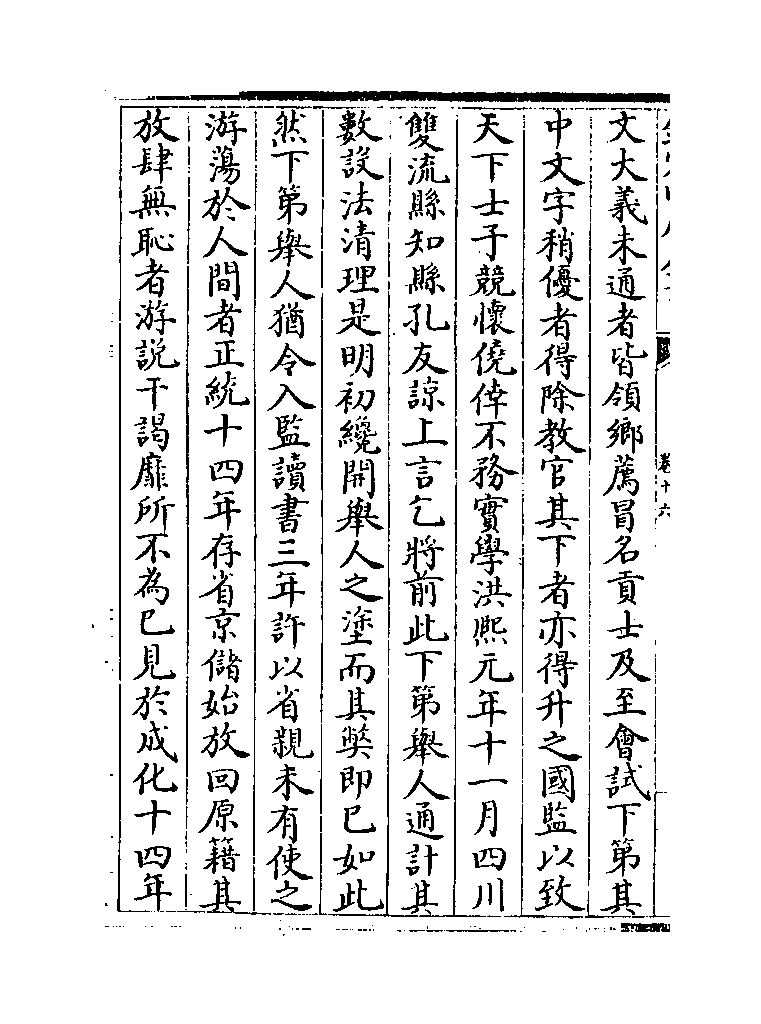 卷十六
文大義未通者皆領鄉薦冒名貢士及至會試下第其
中文字稍優者得除教官其下者亦得升之國監以致
天下士子競懷僥倖不務實學洪熙元年十一月四川
雙流縣知縣孔友諒上言乞將前此下第舉人通計其
數設法清理是明初纔開舉人之塗而其弊即已如此
然下第舉人猶令入監讀書三年許以省親未有使之
游蕩於人間者正統十四年存省京儲始放回原籍其
放肆無恥者游說干謁靡所不為已見於成化十四年